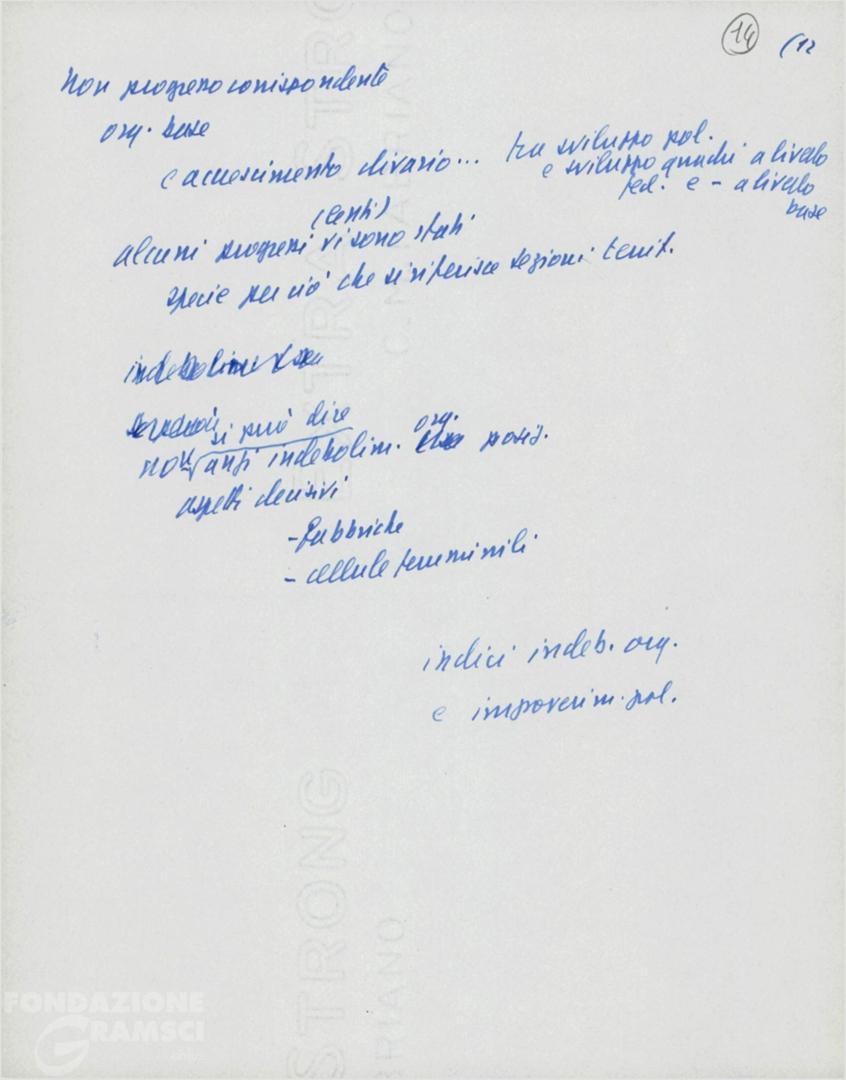 14 (12
Non progresso corrispondente
org. base
e accrescimento divario... tra sviluppo pol.
e sviluppo quadri a livello
fed. e - a livello
base
(lenti)
alcuni progressi vi sono stati
specie per ciò che si riferisce sezioni territ.
si può dire
non anzi indebolim. org. posiz.
aspetti decisivi
- fabbriche
- cellule femminili
indici indeb. org.
e impoverim. pol.
STRONG
FONDAZIONE
GRAMSCI